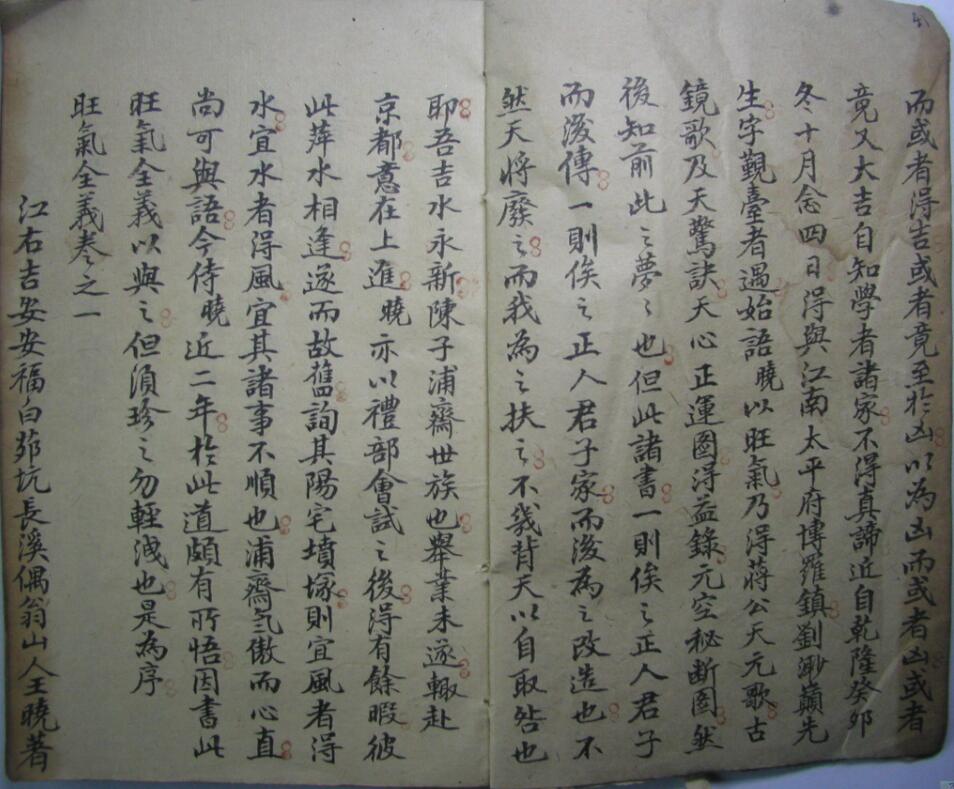 而或者得吉或者竟至於凶以為凶而或者凶或者
竟又大吉自知學者諸家不得真諦近自乾隆癸卯
冬十月念四日得與江南太平府博羅鎮劉泖蘋先
生字觀臺者遇始語曉以旺氣乃得蔣公天元歌古
鏡歌及天驚訣天心正運圖得益錄元空秘断圖然
後知前此之夢之也但此諸書一則俟之正人君子
而後傳一則俟之正人君子家而後為之改造也不
然天將廢之而我為之扶之不幾背天以自取咎也
耶吾吉水永新陳子浦齋世族也舉業未遂輙赴
京都意在上進曉亦以禮部會試之後得有餘暇彼
此萍水相逢遂而故舊詢其陽宅墳塚則宜風者得
水宜水者得風宜其諸事不順也浦齋氣傲而心直
尚可與語今侍曉近二年於此道頗有所悟因書此
旺氣全義以與之但須珍之勿輕洩也是為序
旺氣全義卷之一
江右吉安安福白茆坑長溪偶翁山人王曉著